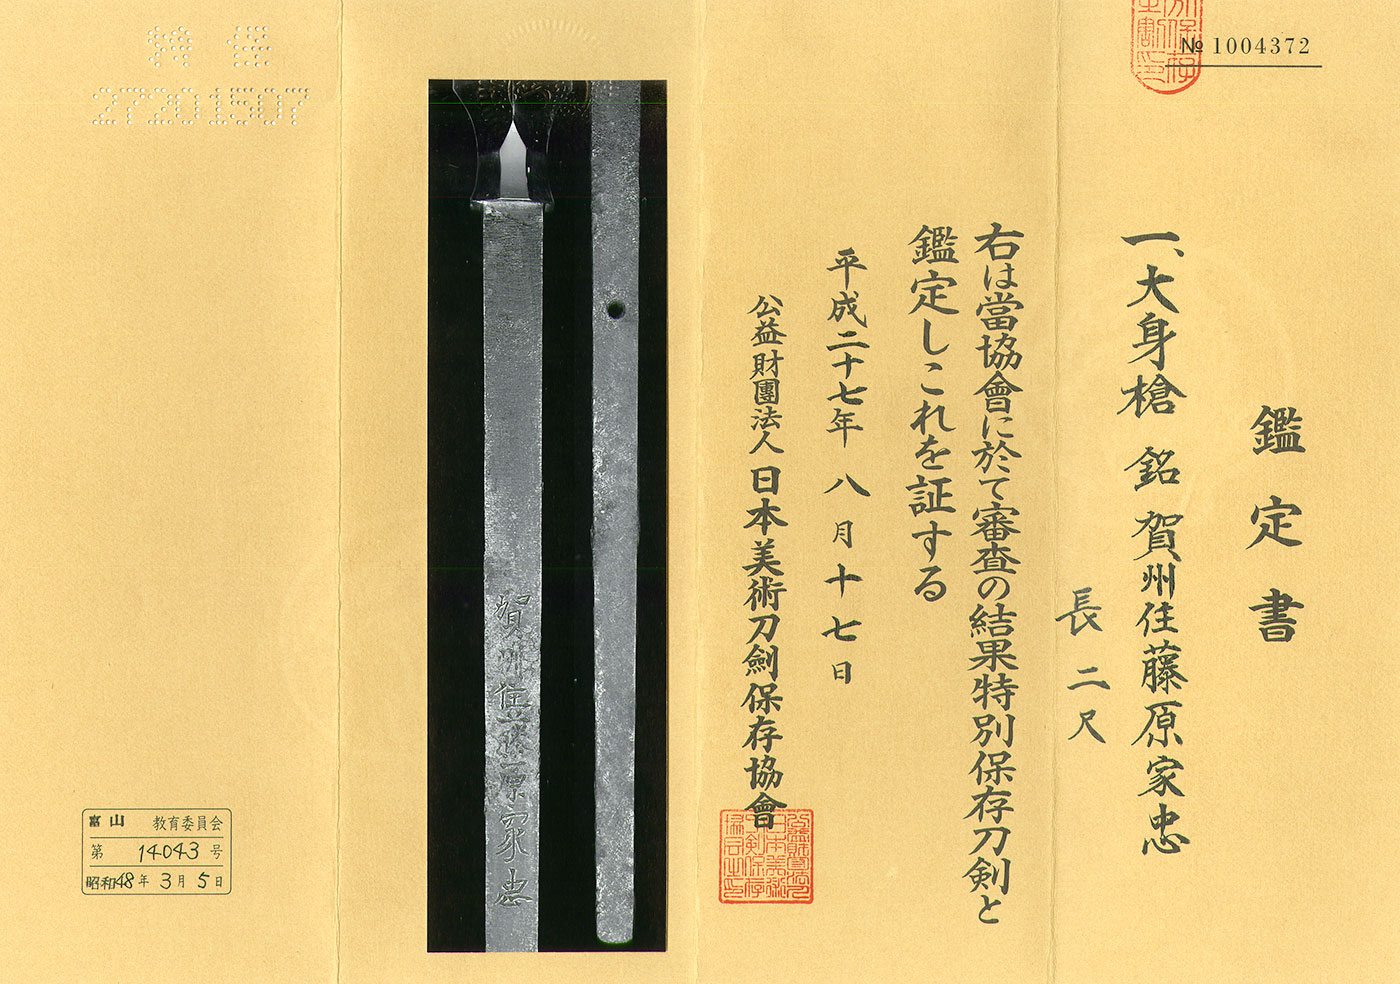 № 1004372
鑑定書
一、大身槍 銘 賀州住藤原家忠
長二尺
右は當協會に於て審査の結果特別保存刀剣と
鑑定しこれを証する
平成二十七年八月十七日
公益財團法人日本美術刀劍保存協會
賀州住藤原家忠
特保
27201507
富山 教育委員会
第 14043 号
昭和48年3月5日